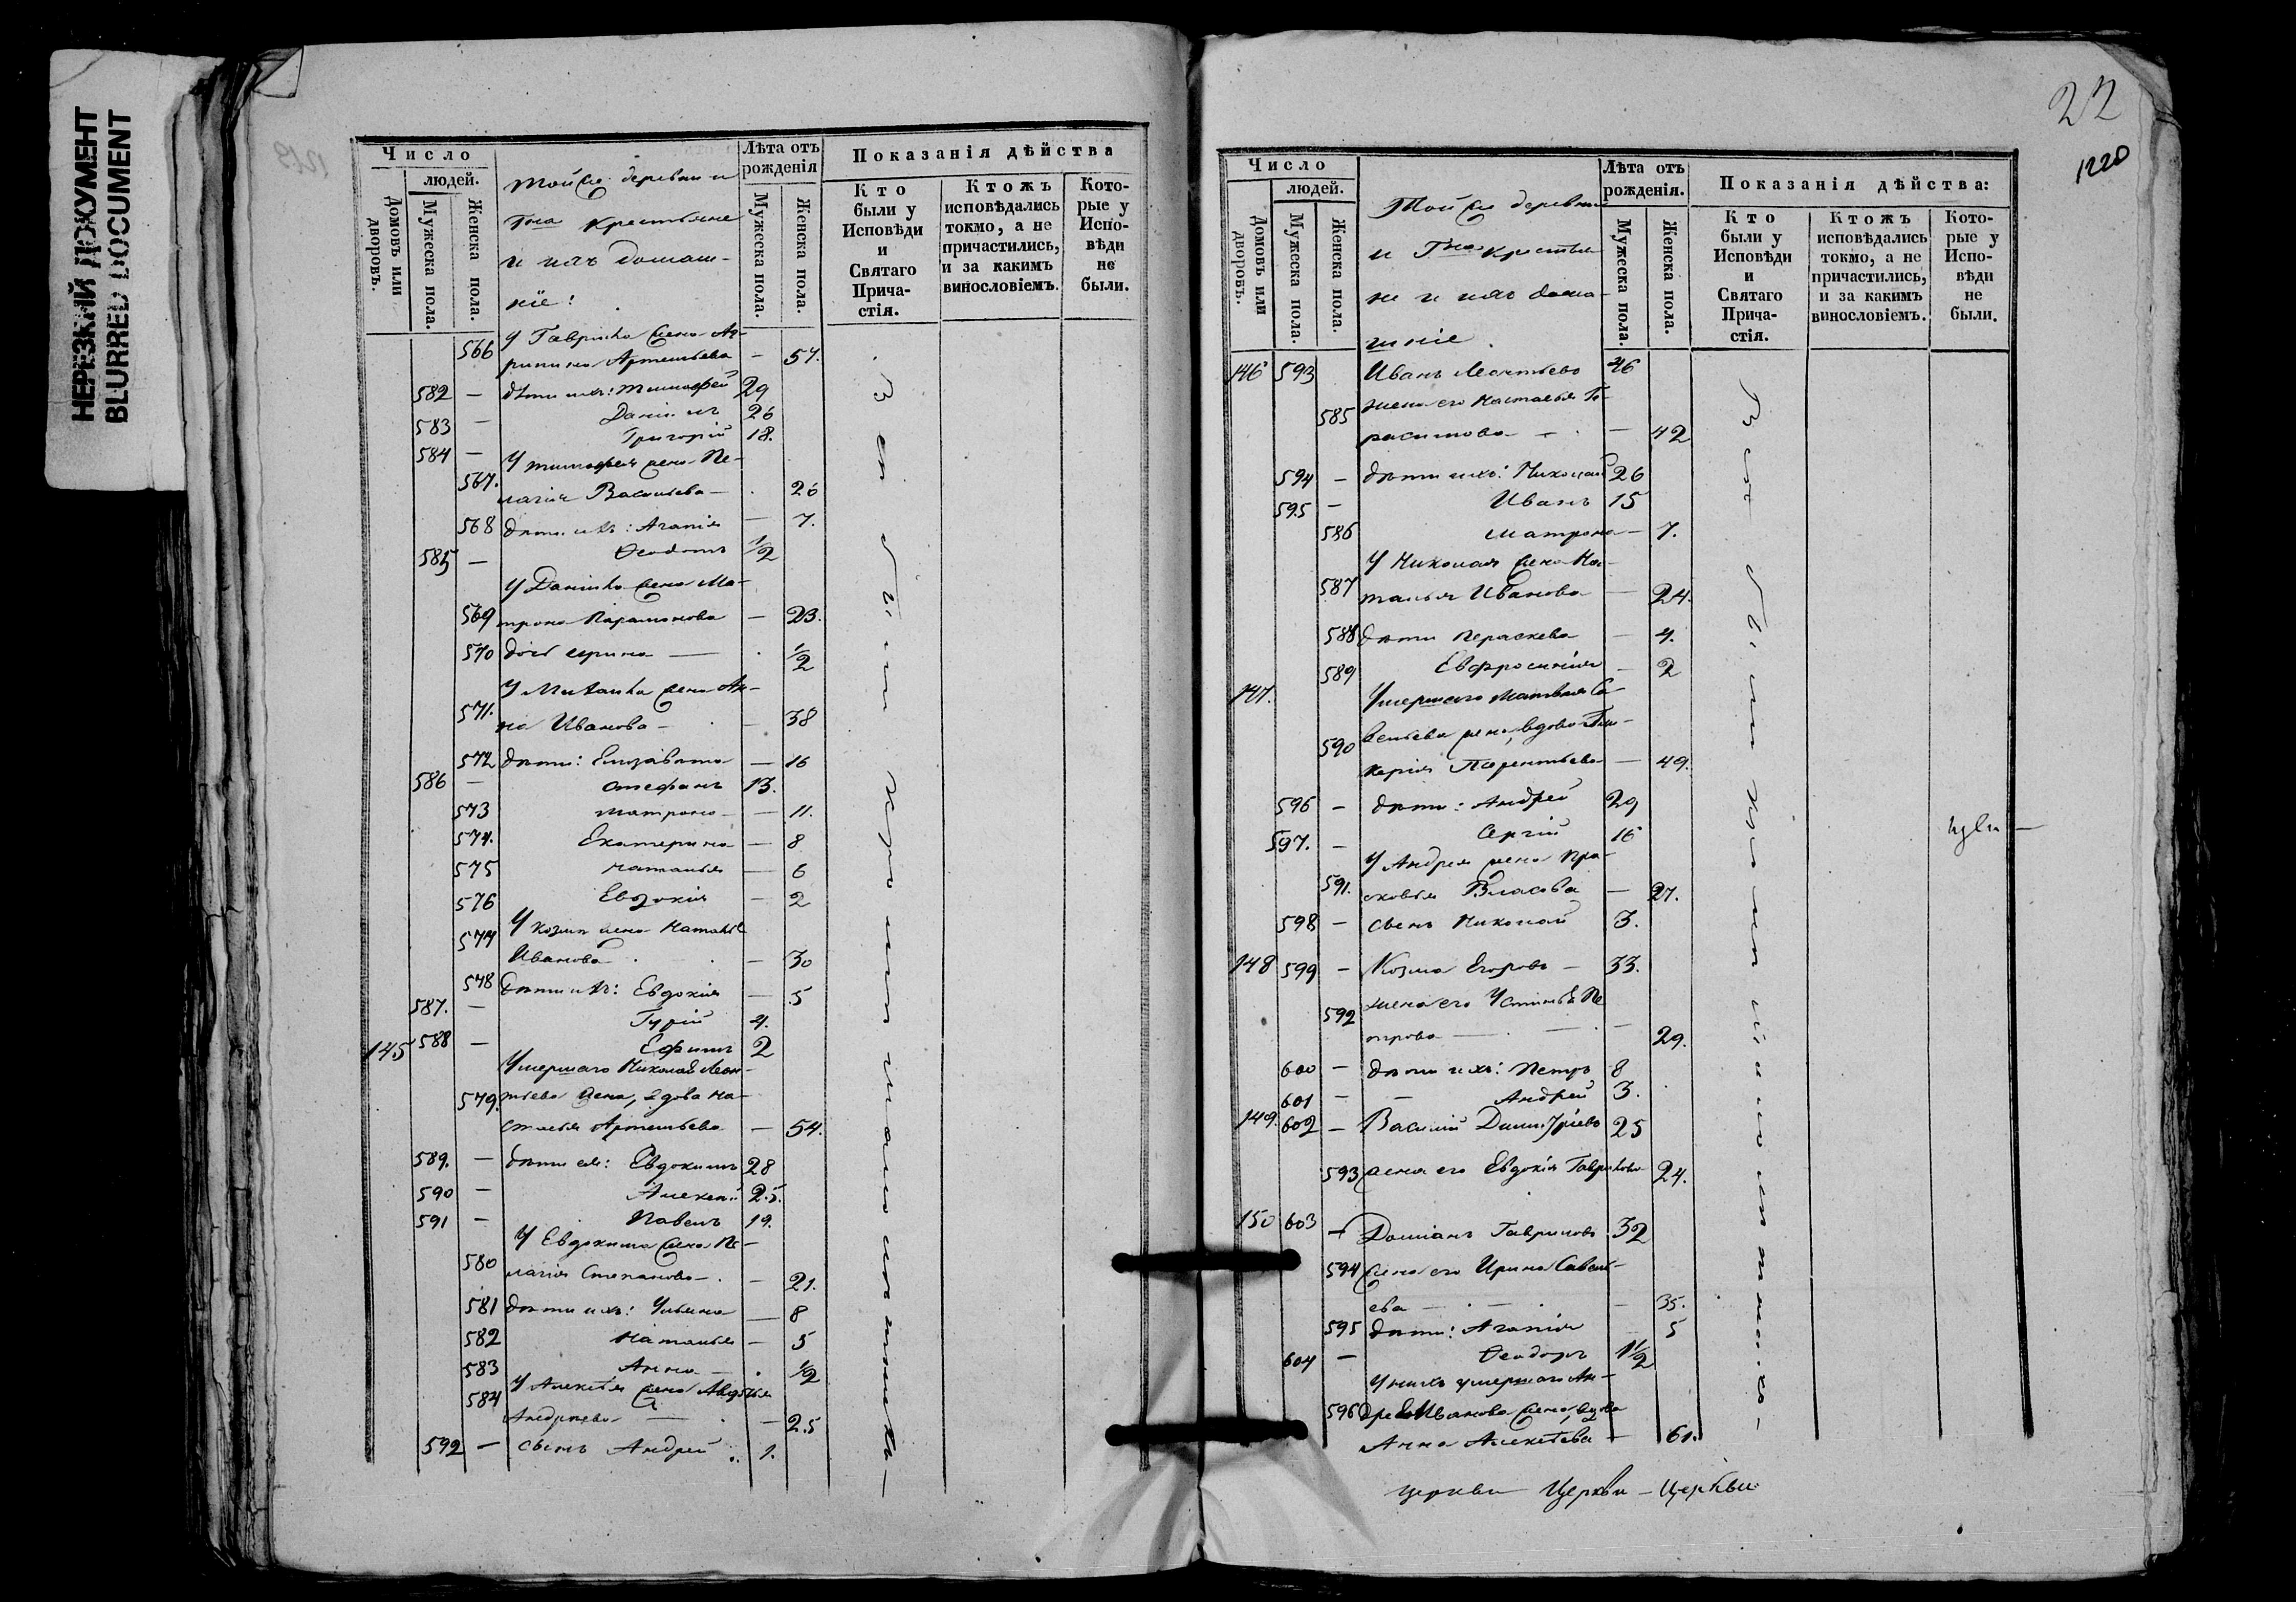 НЕРЕЗКИЙ ДОКУМЕНТ
BLURRED DOCUMENT
Число
людей.
Домовъ или дворовъ.
Мужеска пола.
Женска пола.
Той же деревни и
Гна крестьяне
и ихъ домаш-
ніе:
Лѣта отъ рожденія
Мужеска пола.
Женска пола.
Показанія дѣйства
Кто были у Исповѣди и Святаго Причастія.
Ктожъ исповѣдались токмо, а не причастились, и за какимъ винословіемъ.
Которые у Исповѣди не были.
У Гавриила жена Ак-
566 рипина Артемьева — 57.
582 — дѣти ихъ: Тимофей 29
583 — Даніилъ 26
584 — Григорій 18.
У Тимофея жена Пе-
567. лагія Васильева — 26
568 дѣти ихъ: Агапія — 7.
585 — Ѳеодотъ 1/2
У Даніила жена Ма-
569 трона Парамонова — 23.
570 дочь Ирина — 1/2
У Михаила жена Ан-
571. на Иванова — 38
572 дѣти: Елизавета — 16
586 — Стефанъ 13.
573 Матрона — 11.
574. Екатерина — 8
575 Наталья — 6
576 Евдокія — 2
577 У Козмы жена Наталья
Иванова — 30
578 дѣти ихъ: Евдокія — 5
587. — Гурій 4.
145 588 — Ефимъ 2
Умершаго Николая Леон-
579. тьева жена, вдова На-
сталья Артемьева — 54.
589. — дѣти ея: Евдокимъ 28
590 — Алексѣй 25.
591 — Павелъ 19.
У Евдокима жена Пе-
580 лагія Степанова — 21.
581 дѣти ихъ: Ульяна — 8
582 Наталья — 5
583 Анна — 1/2
584 У Алексѣя жена Авдотья
Андреева — 25
592 — сынъ Андрей 1.
22
1220
Число
людей.
Домовъ или дворовъ.
Мужеска пола.
Женска пола.
Той же деревни
и Гна крестья-
не и ихъ дома-
шніе
Лѣта отъ рожденія.
Мужеска пола.
Женска пола.
Показанія дѣйства:
Кто были у Исповѣди и Святаго Причастія.
Ктожъ исповѣдались токмо, а не причастились, и за какимъ винословіемъ.
Которые у Исповѣди не были.
146 593 Иванъ Леонтьевъ 46
585 жена его Настасья Ге-
расимова — 42
594 — дѣти ихъ: Николай 26
595 — Иванъ 15
586 Матрона — 7.
У Николая жена На-
587 талья Иванова — 24.
588 дѣти Параскева — 4.
589 Евфросинія — 2
147. Умершаго Матвея Са-
590 вельева жена, вдова Гли-
керія Терентьева — 49.
596 — дѣти: Андрей 29
597. — Сергій 16
У Андрея жена Пра-
591. сковья Власова — 27.
598 — сынъ Николай 3.
148 599 — Козма Егоровъ — 33.
592 жена его Устинья Пе
трова — 29.
600 — дѣти ихъ: Петръ 8
601 — Андрей 3.
149. 602 — Василий Димитріевъ 25
593 жена его Евдокія Гаврилова 24.
150 603 — Доміанъ Гавриловъ 32
594 жена его Ирина Савель-
ева — 35.
595 дѣти: Агапія 5
604 — Ѳеодоръ 1 1/2
У нихъ умершаго Ан-
596 дрея Иванова жена, вдова
Анна Алексѣева — 61.
церкви Церкви — Церкви